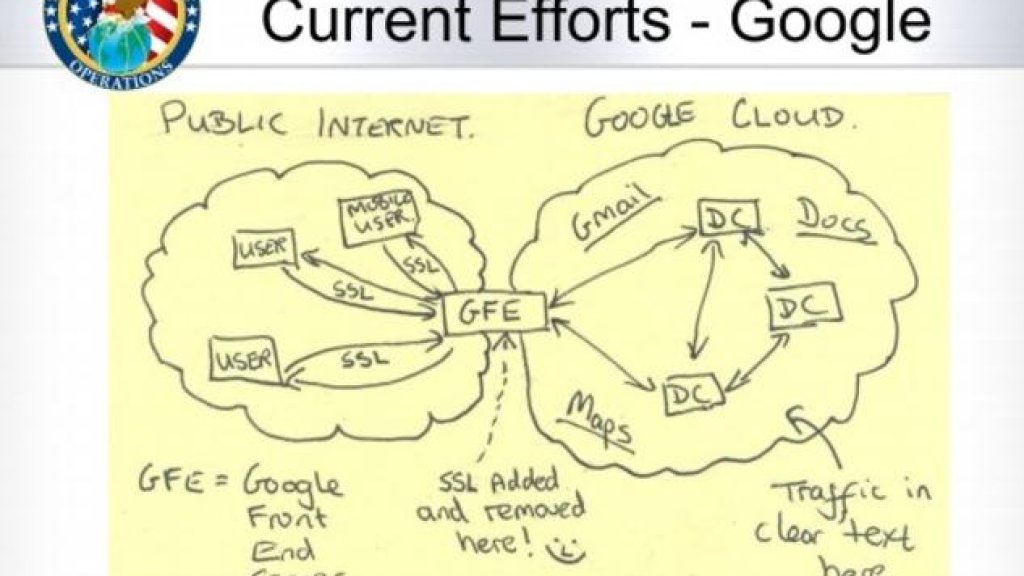 Current Efforts - Google
OPERATIONS
PUBLIC INTERNET.
GOOGLE CLOUD.
MOBILE
USER.
USER
SSL
SSL
GFE
USER
SSL
Gmail
DC
Docs
DC
DC
Maps
GFE = Google
Front
End
SSL Added
and removed
here!
Traffic in
clear text
here